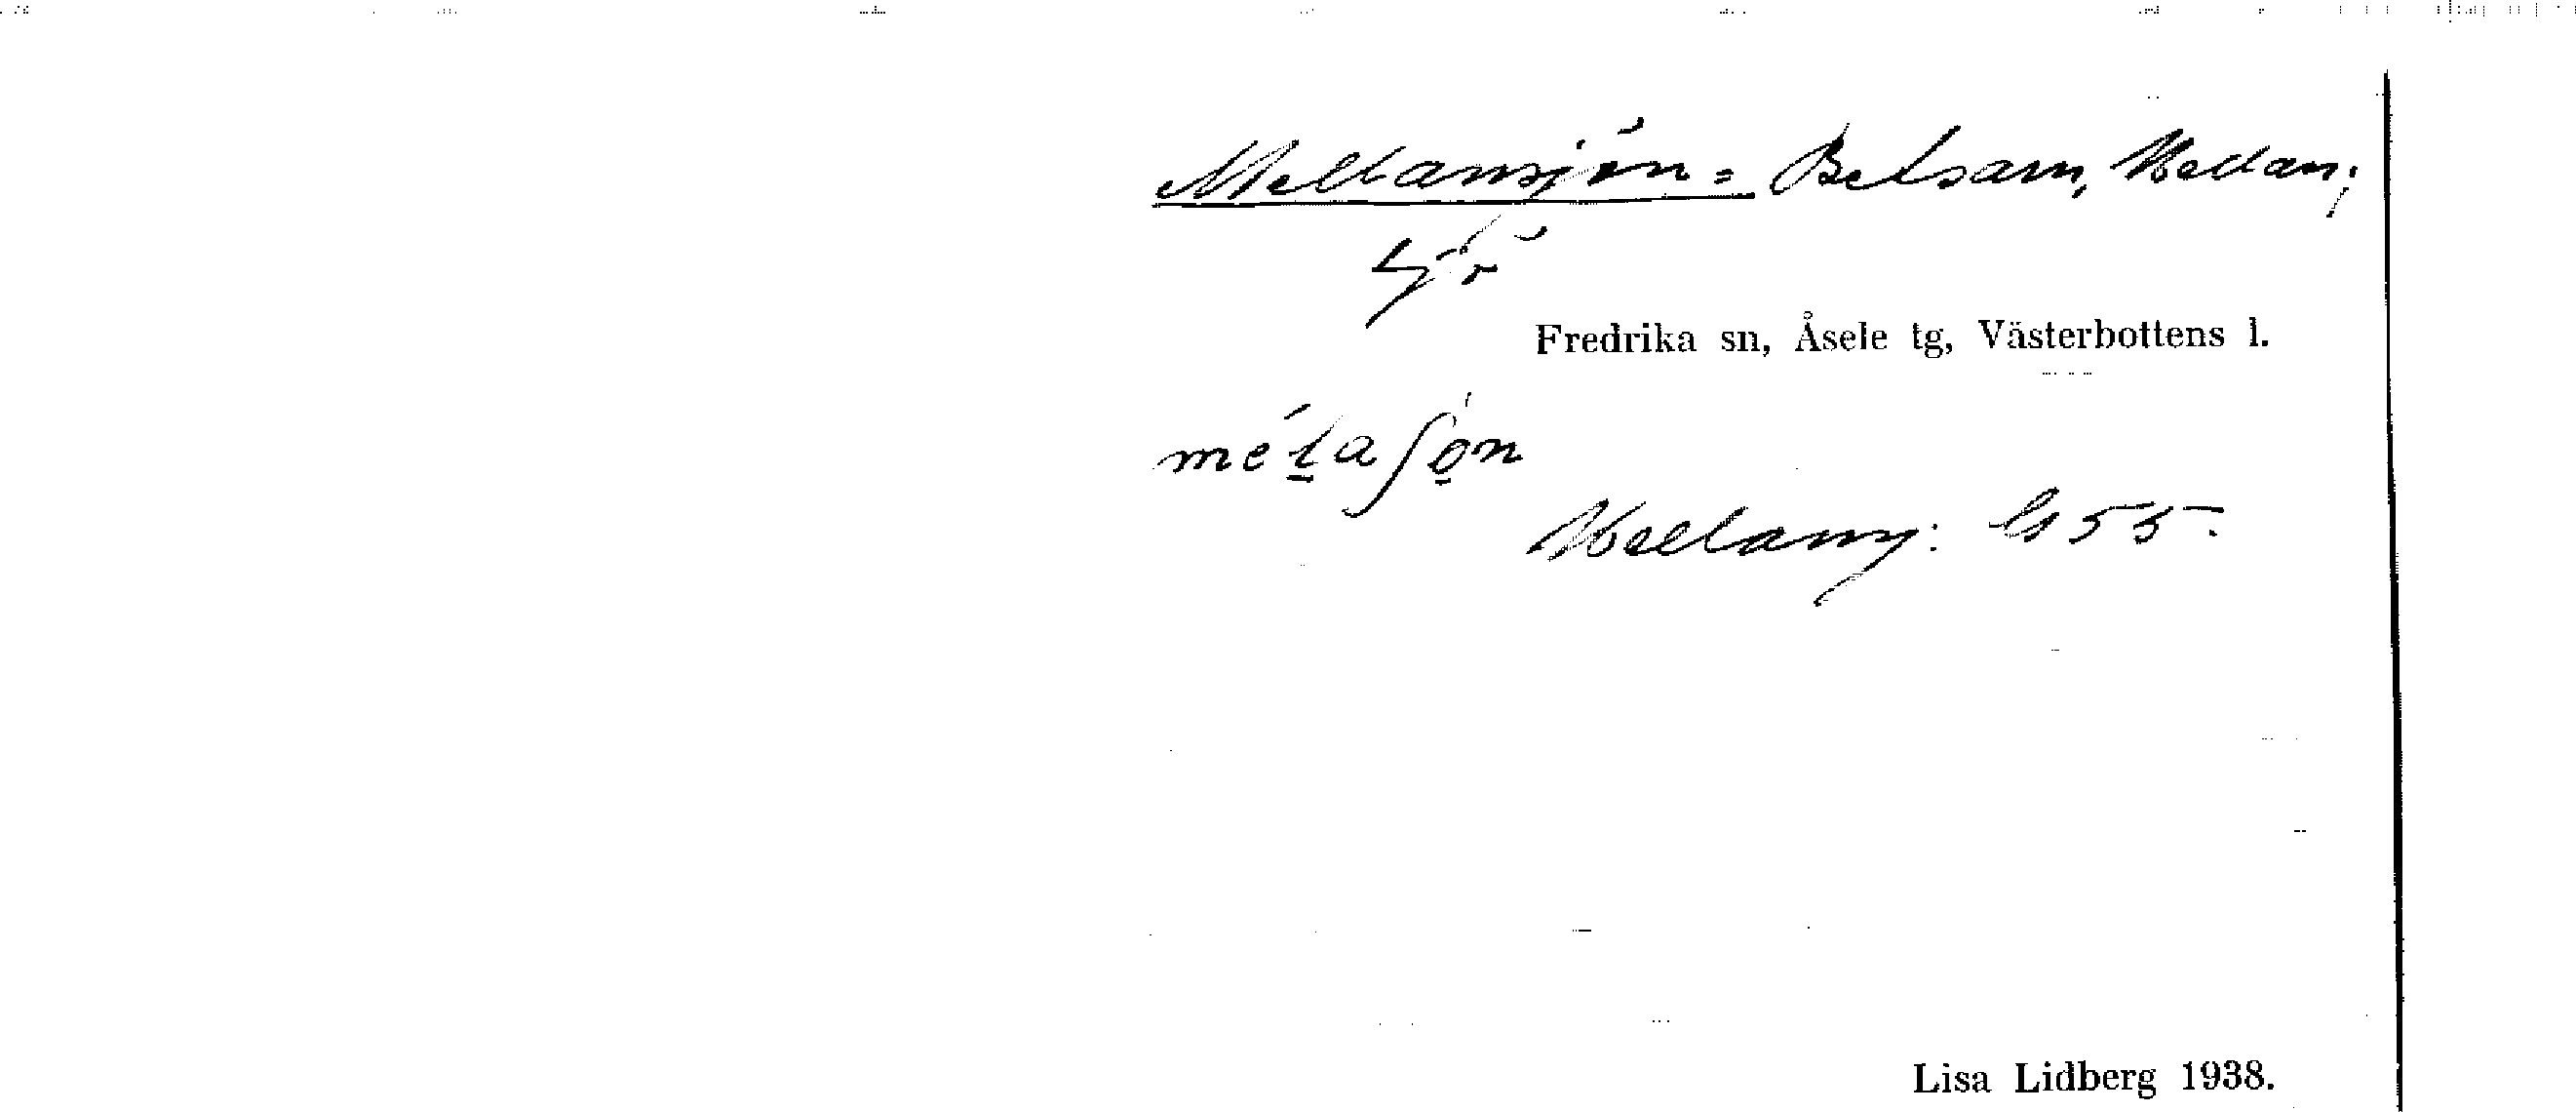 Mellansjön = Betsarn, Mellan,
sjö
Fredrika sn, Åsele tg, Västerbottens l.
mélaʃø̀n
Mellansj: G 55.
Lisa Lidberg 1938.